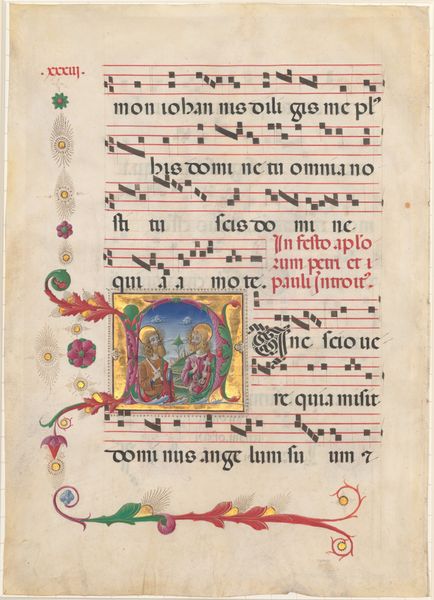 .xxxiij.
mon iohan nis dili gis me pl9
his domi ne tu omnia no
sti tu scis do mi ne
In festo aplo
rum petri et
qui a a mo te. pauli Introit9.
N
unc scio ve
re quia misit
domi nus ange lum su um ⁊